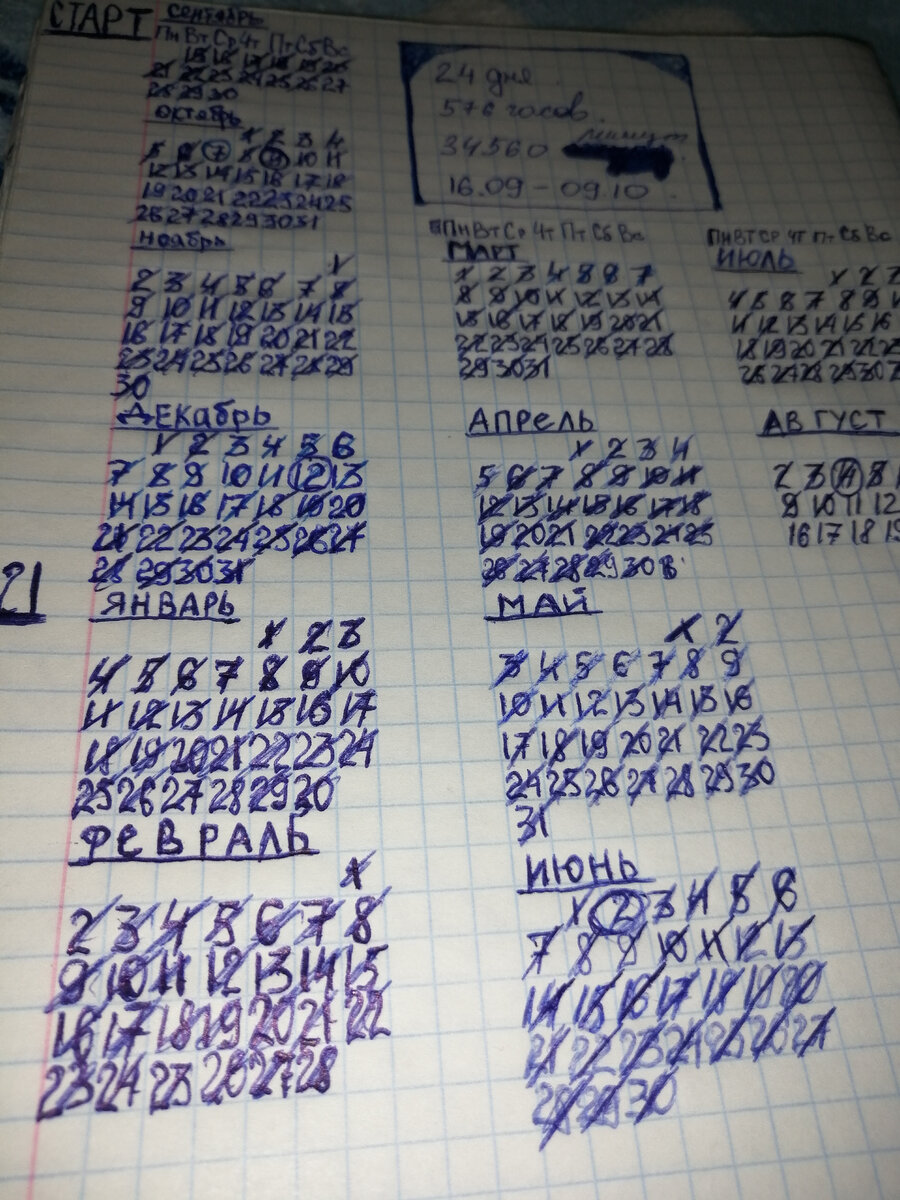 СТАРТ
СЕНТЯБРЬ
Пн Вт Ср Чт Пт Сб Вс
15 16 17 18 19 20
21 22 23 24 25 26 27
28 29 30
ОКТЯБРЬ
1 2 3 4
5 6 7 8 9 10 11
12 13 14 15 16 17 18
19 20 21 22 23 24 25
26 27 28 29 30 31
Ноябрь
1
2 3 4 5 6 7 8
9 10 11 12 13 14 15
16 17 18 19 20 21 22
23 24 25 26 27 28 29
30
ДЕКАбрЬ
1 2 3 4 5 6
7 8 9 10 11 12 13
14 15 16 17 18 19 20
21 22 23 24 25 26 27
28 29 30 31
21
ЯНВАРЬ
1 2 3
4 5 6 7 8 9 10
11 12 13 14 15 16 17
18 19 20 21 22 23 24
25 26 27 28 29 30
ФЕВРАЛЬ
1
2 3 4 5 6 7 8
9 10 11 12 13 14 15
16 17 18 19 20 21 22
23 24 25 26 27 28
24 дня
576 часов
34560 минут
16.09 - 09.10
Пн Вт Ср Чт Пт Сб Вс
МАРТ
1 2 3 4 5 6 7
8 9 10 11 12 13 14
15 16 17 18 19 20 21
22 23 24 25 26 27 28
29 30 31
АПРЕЛЬ
1 2 3 4
5 6 7 8 9 10 11
12 13 14 15 16 17 18
19 20 21 22 23 24 25
26 27 28 29 30
МАЙ
1 2
3 4 5 6 7 8 9
10 11 12 13 14 15 16
17 18 19 20 21 22 23
24 25 26 27 28 29 30
31
ИЮНЬ
1 2 3 4 5 6
7 8 9 10 11 12 13
14 15 16 17 18 19 20
21 22 23 24 25 26 27
28 29 30
Пн ВТ СР ЧТ Пт Сб Вс
ИЮЛЬ
1 2 3
4 5 6 7 8 9
11 12 13 14 15 16
18 19 20 21 22 23
26 27 28 29 30
АВГУСТ
2 3 4 5
9 10 11 12
16 17 18 19